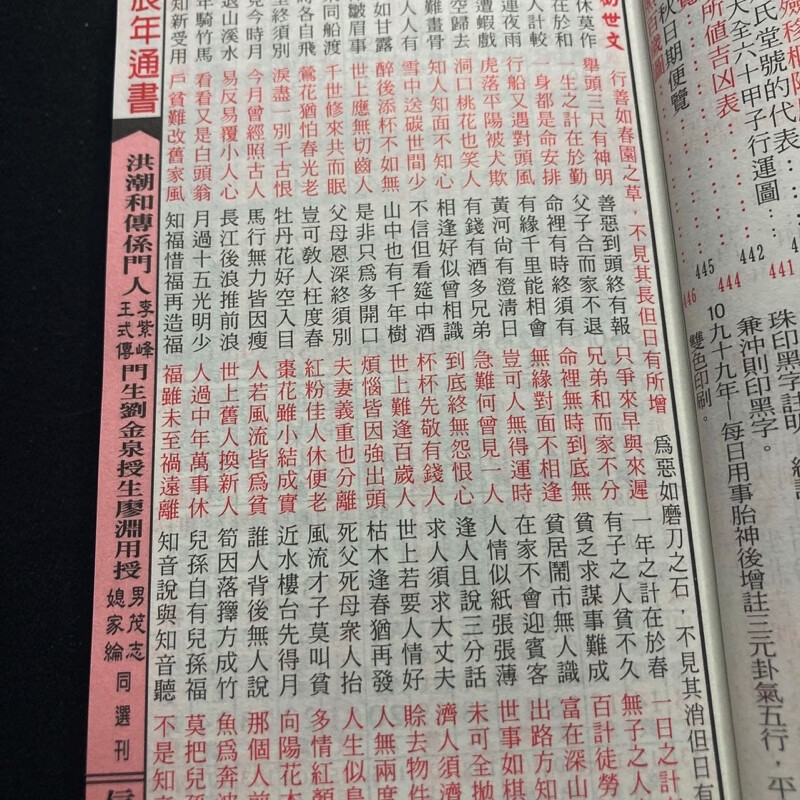 險移相
氏堂號的代表：
大全六十甲子行運圖： 442 441
所值吉凶表 444
秋日期便覽 445
446
珠印黑字註明
兼沖則印黑字。
10 九十九年—每日用事胎神後增註三元卦氣五行，平
雙色印刷。
世文
行善如春園之草，不見其長但日有所增 為惡如磨刀之石，不見其消但日有
休莫作 舉頭三尺有神明 善惡到頭終有報 只爭來早與來遲 一年之計在於春 一日之計
在於和 一生之計在於勤 父子合而家不退 兄弟和而家不分 有子之人貧不久 無子之人
人計較 一身都是命安排 命裡有時終須有 命裡無時到底無 貧乏求謀事難成 百計徒勞
連夜雨 行船又遇對頭風 有緣千里能相會 無緣對面不相逢 貧居鬧市無人識 富在深山
遭蝦戲 虎落平陽被犬欺 黃河尙有澄清日 豈可人無得運時 在家不會迎賓客 出路方知
空歸去 洞口桃花也笑人 有錢有酒多兄弟 急難何曾見一人 人情似紙張張薄 世事如棋
難畫骨 知人知面不知心 相逢好似曾相識 到底終無怨恨心 逢人且說三分話 未可全拋
人人有 雪中送碳世間少 不信但看筵中酒 杯杯先敬有錢人 求人須求大丈夫 濟人須濟
如甘露 醉後添杯不如無 山中也有千年樹 世上難逢百歲人 世上若要人情好 賒去物件
皺眉事 世上應無切齒人 是非只為多開口 煩惱皆因強出頭 枯木逢春猶再發 人無兩度
同船渡 千世修來共而眠 父母恩深終須別 夫妻義重也分離 死父死母衆人抬 人生似鳥
為各自飛 鶯花猶怕春光老 豈可教人枉度春 紅粉佳人休便老 風流才子莫叫貧 多情紅顏
至終須別 淚盡一別千古恨 牡丹花好空入目 棗花雖小結成實 近水樓台先得月 向陽花木
見今時月 今月曾經照古人 馬行無力皆因瘦 人若風流皆為貧 誰人背後無人說 那個人前
退山溪水 易反易覆小人心 長江後浪推前浪 世上舊人換新人 筍因落籜方成竹 魚為奔波
年騎竹馬 看看又是白頭翁 月過十五光明少 人過中年萬事休 兒孫自有兒孫福 莫把兒孫
知新受用 戶貧難改舊家風 知福惜福再造福 福雖未至禍遠離 知音說與知音聽 不是知音
辰年通書
洪潮和傳係門人 李紫峰 王式傳 門生劉金泉授生廖淵用授 男茂志 媳家綸 同選刊